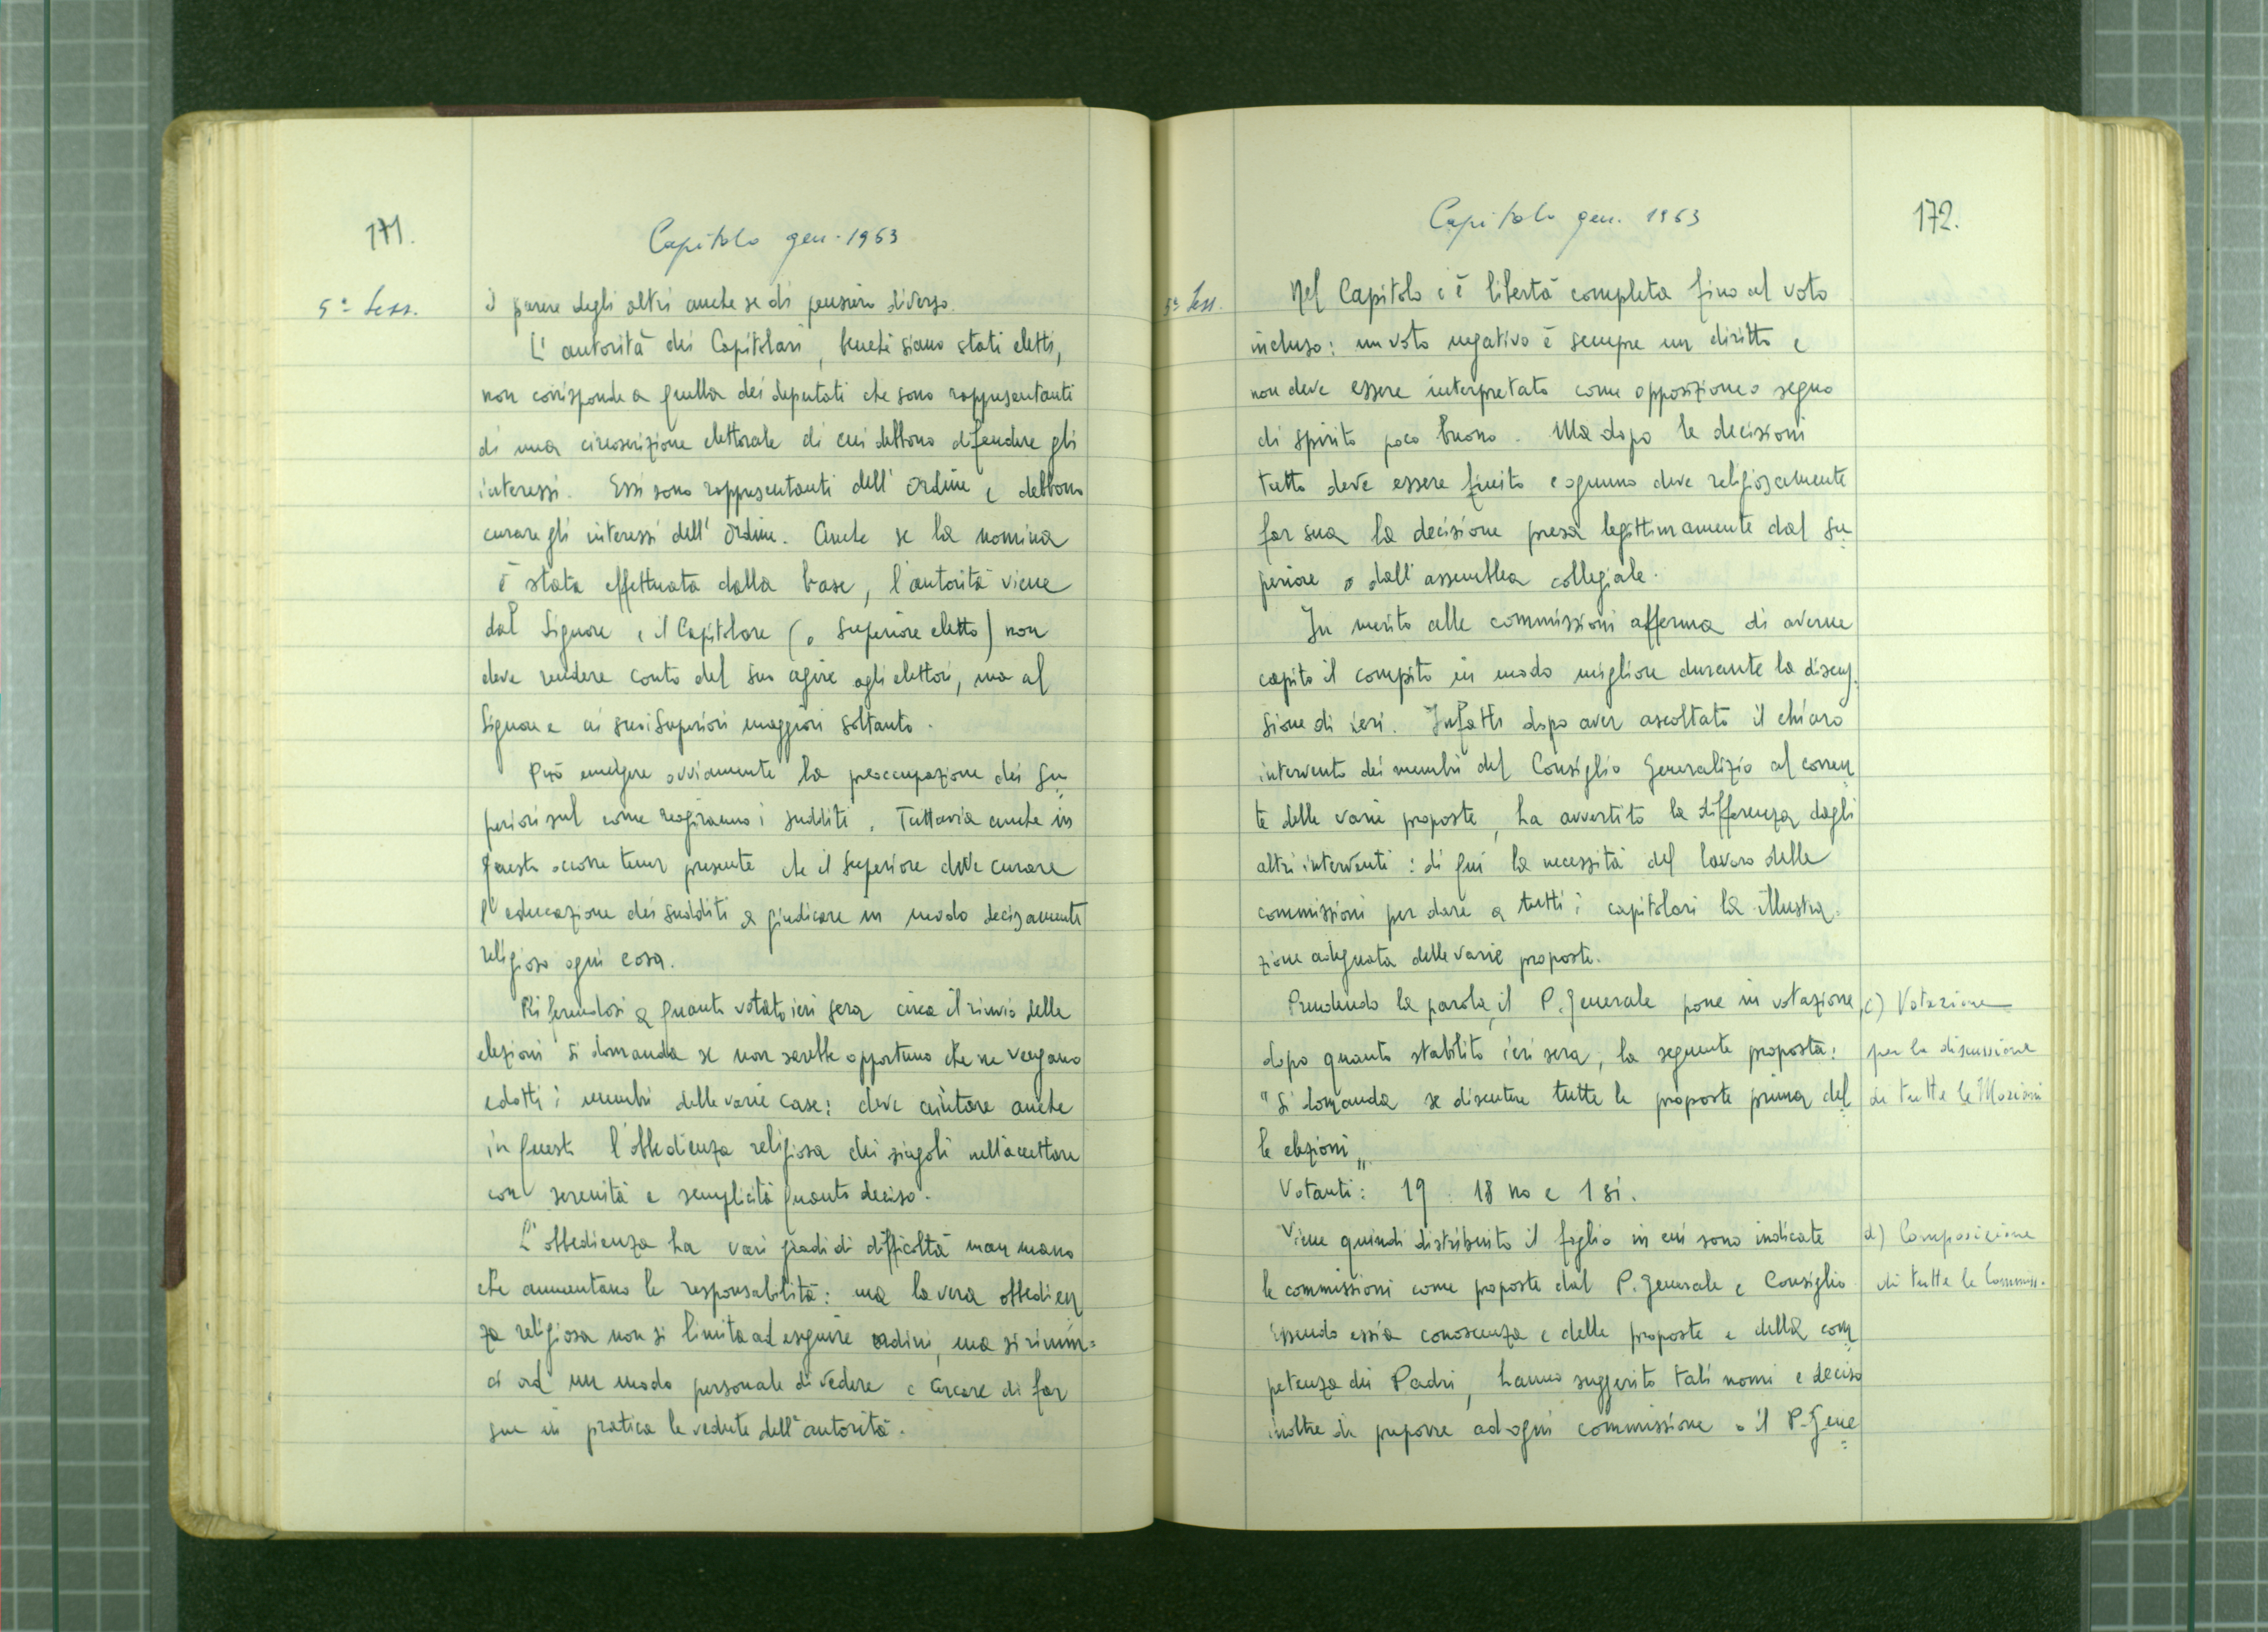 171.
Capitolo gen. 1963
5ª Sess.
il parere degli altri anche se di pensiero diverso.
L' autorità dei Capitolari, benchè siano stati eletti,
non corrisponde a quella dei deputati che sono rappresentanti
di una circoscrizione elettorale di cui debbono difendere gli
interessi. Essi sono rappresentanti dell' Ordine e debbono
curare gli interessi dell' Ordine. Anche se la nomina
è stata effettuata dalla base, l'autorità viene
dal Signore e il Capitolare (o Superiore eletto) non
deve rendere conto del suo agire agli elettori, ma al
Signore e ai suoi Superiori maggiori soltanto.
Può emergere ovviamente la preoccupazione dei Su
periori sul come reagiranno i sudditi. Tuttavia anche in
questo occorre tener presente che il Superiore deve curare
l'educazione dei sudditi a giudicare in modo decisamente
religioso ogni cosa.
Riferendosi a quanto votato ieri sera circa il rinvio delle
elezioni si domanda se non sarebbe opportuno che ne vengano
edotti i membri delle varie case: deve aiutare anche
in questo l'obbedienza religiosa dei singoli nell'accettare
con serenità e semplicità quanto deciso.
L'obbedienza ha vari gradi di difficoltà man mano
che aumentano le responsabilità: ma la vera obbedien
za religiosa non si limita ad eseguire ordini, ma si rinun=
ci ad un modo personale di vedere e cercare di far
sue in pratica le vedute dell'autorità.
Capitolo gen. 1963
172.
5ª Sess.
Nel Capitolo c'è libertà completa fino al voto
incluso: un voto negativo è sempre un diritto e
non deve essere interpretato come opposizione o segno
di spirito poco buono. Ma dopo le decisioni
tutto deve essere finito e ognuno deve religiosamente
far sua la decisione presa legittimamente dal Su
periore o dall'assemblea collegiale.
In merito alle commissioni afferma di averne
capito il compito in modo migliore durante la discus
sione di ieri. Infatti dopo aver ascoltato il chiaro
intervento dei membri del Consiglio Generalizio al corren
te delle varie proposte, ha avvertito la differenza dagli
altri interventi: di qui la necessità del lavoro delle
commissioni per dare a tutti i capitolari la illustra=
zione adeguata delle varie proposte.
Prendendo la parola, il P. Generale pone in votazione,
c) Votazione
dopo quanto stabilito ieri sera, la seguente proposta:
per la discussione
"Si domanda se discutere tutte le proposte prima del
di tutte le Mozioni
le elezioni".
Votanti: 19. 18 no e 1 si.
Viene quindi distribuito il foglio in cui sono indicate
d) Composizione
le commissioni come proposte dal P. Generale e Consiglio
di tutte le Commiss.
Essendo essi a conoscenza e delle proposte e della com
petenza dei Padri, hanno suggerito tali nomi e deciso
inoltre di preporre ad ogni commissione o il P. Gene